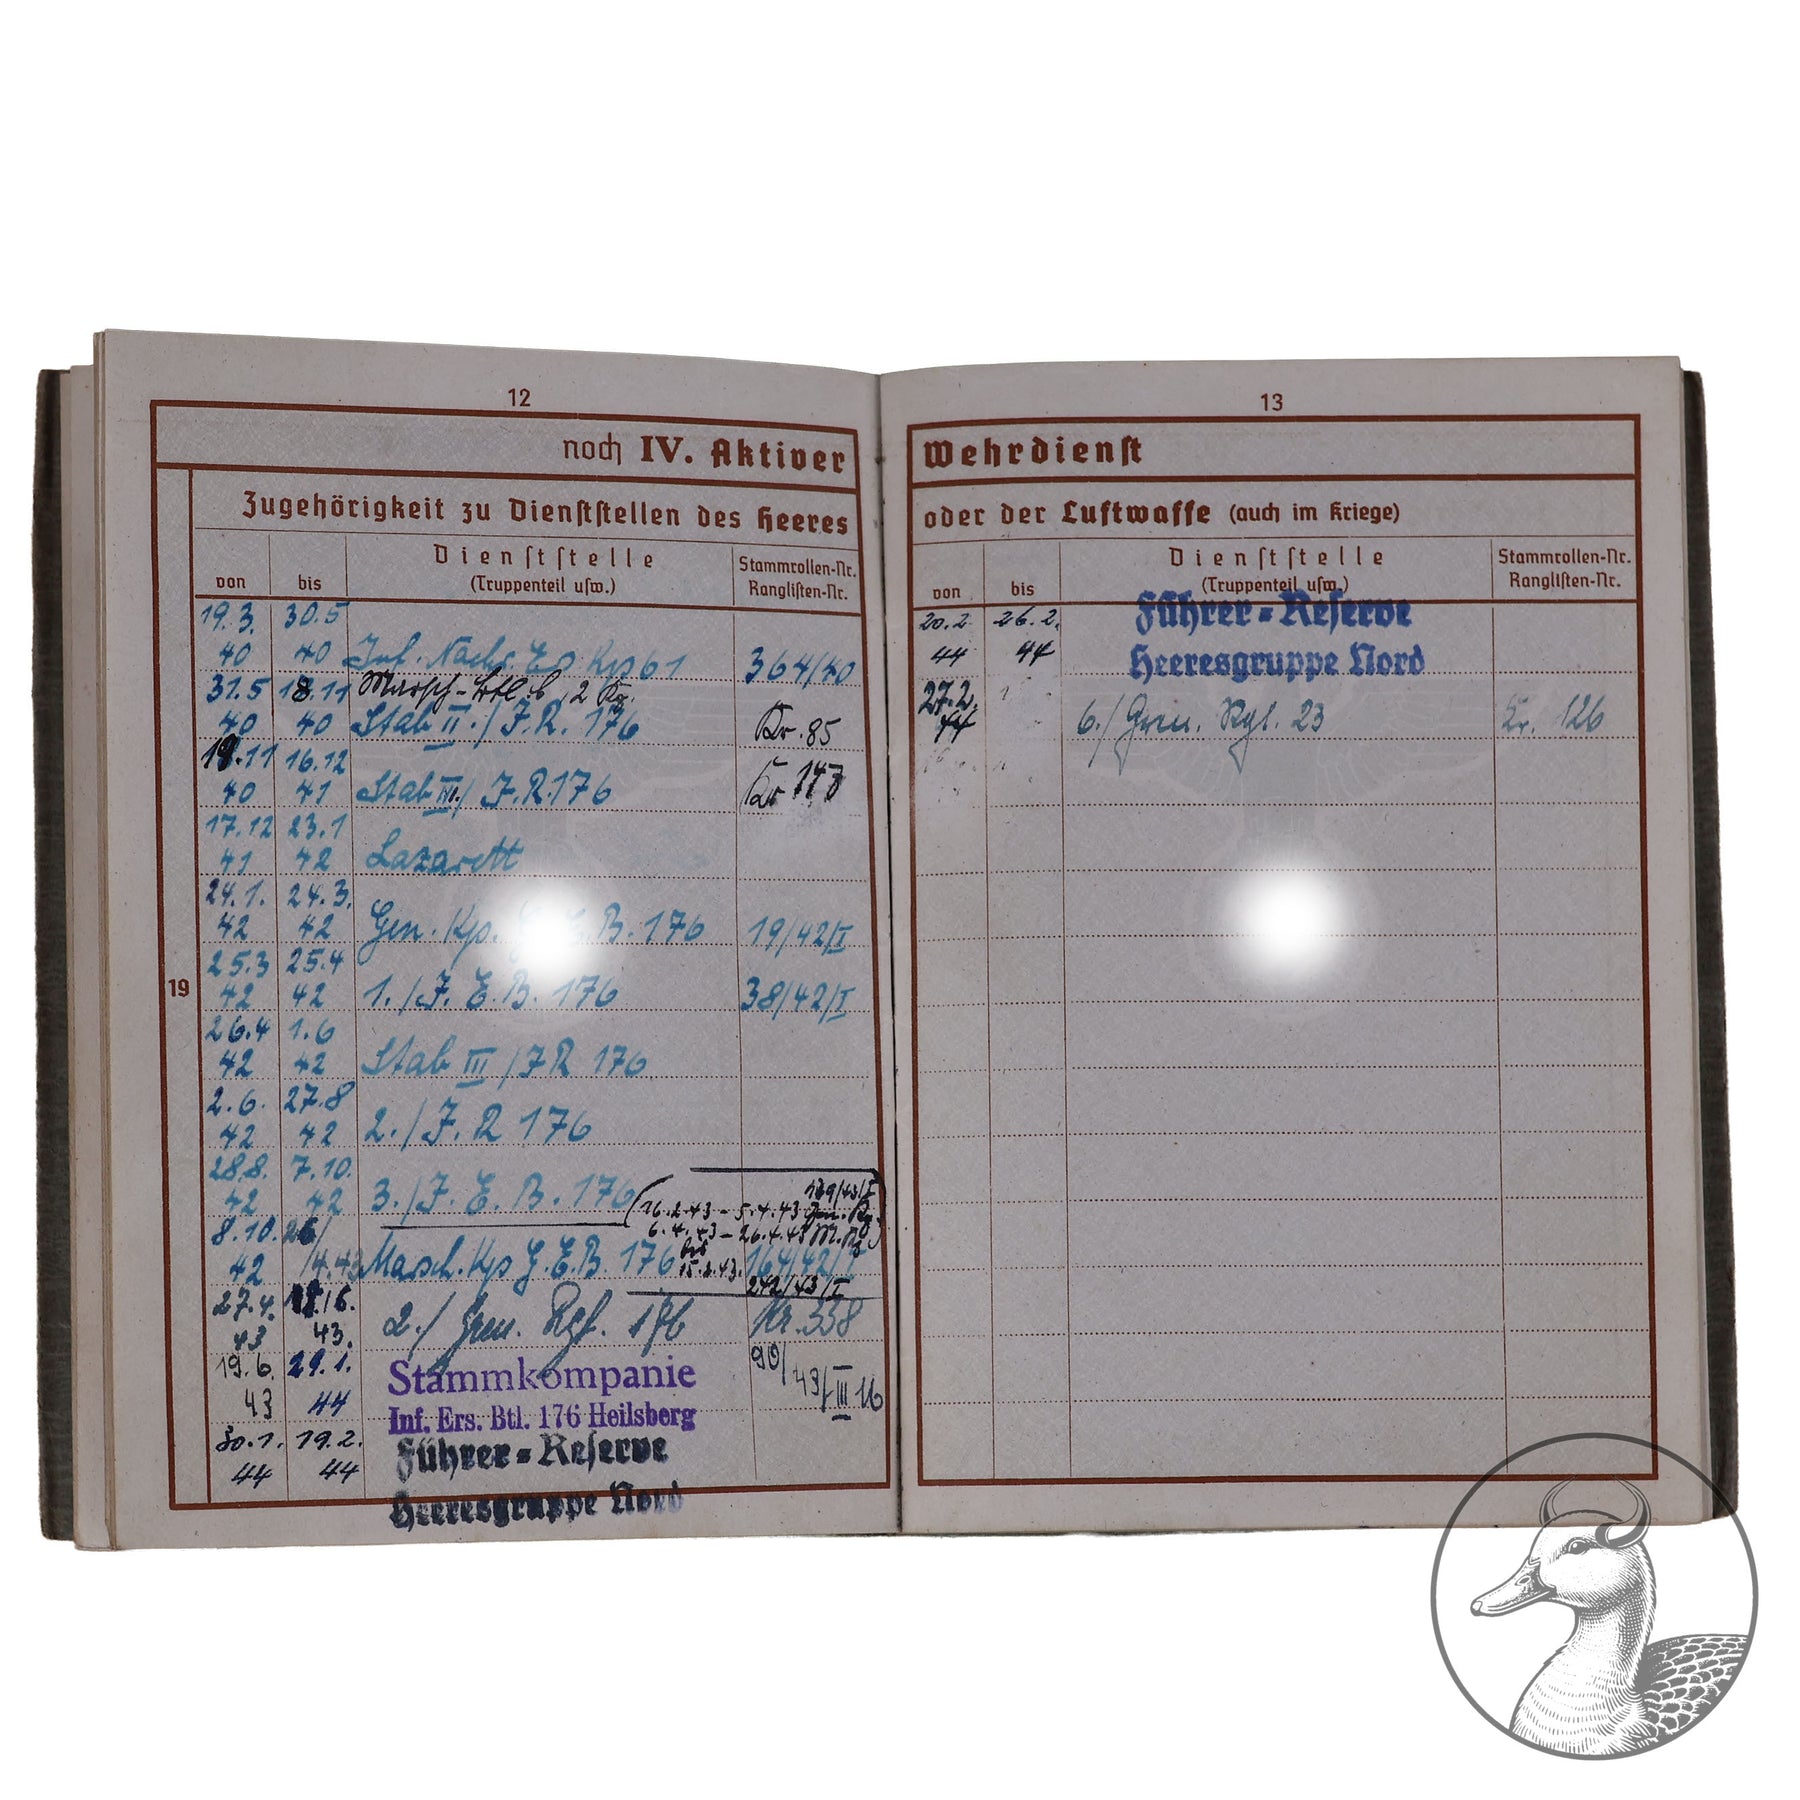 12
noch IV. Aktiver
Zugehörigkeit zu Dienststellen des Heeres
von bis Dienststelle (Truppenteil usw.) Stammrollen-Nr. Ranglisten-Nr.
19
19.3. 40 30.5 40 Inf. Nachr. Kp 61 364/40
31.5 40 18.11 40 Marsch-Btl. 6, 2 Kp. Stab II./J.R. 176 Kr. 85
19.11 40 16.12 41 Stab III./J.R. 176 Kr 147
17.12 41 23.1 42 Lazarett
24.1. 42 24.3. 42 Gen. Kp. E.B. 176 19/42/I
25.3 42 25.4 42 1./J.E.B. 176 38/42/I
26.4 42 1.6 42 Stab III/JR 176
2.6. 42 27.8 42 2./J.R 176
28.8. 42 7.10. 42 3./J.E.B. 176
(16.2.43 – 5.4.43 Gen. Kp.
6.4.43 – 26.4.43 M.Kp)
8.10. 42 26/4.43 Masch. Kp G.E.B. 176 bis 15.2.43. 164/42/I
242/43/I
27.4. 43 6. 43. 2./Gren. Rgt. 176 Kr. 338
19.6. 43 29.1. 44 Stammkompanie 90/43/III 16
Inf. Ers. Btl. 176 Heilsberg
30.1. 44 19.2. 44 Führer-Reserve
Heeresgruppe Nord
13
Wehrdienst
oder der Luftwaffe (auch im Kriege)
von bis Dienststelle (Truppenteil usw.) Stammrollen-Nr. Ranglisten-Nr.
20.2 44 26.2. 44 Führer-Reserve
Heeresgruppe Nord
27.2. 44 6./Gren. Rgt. 23 Kr. 126